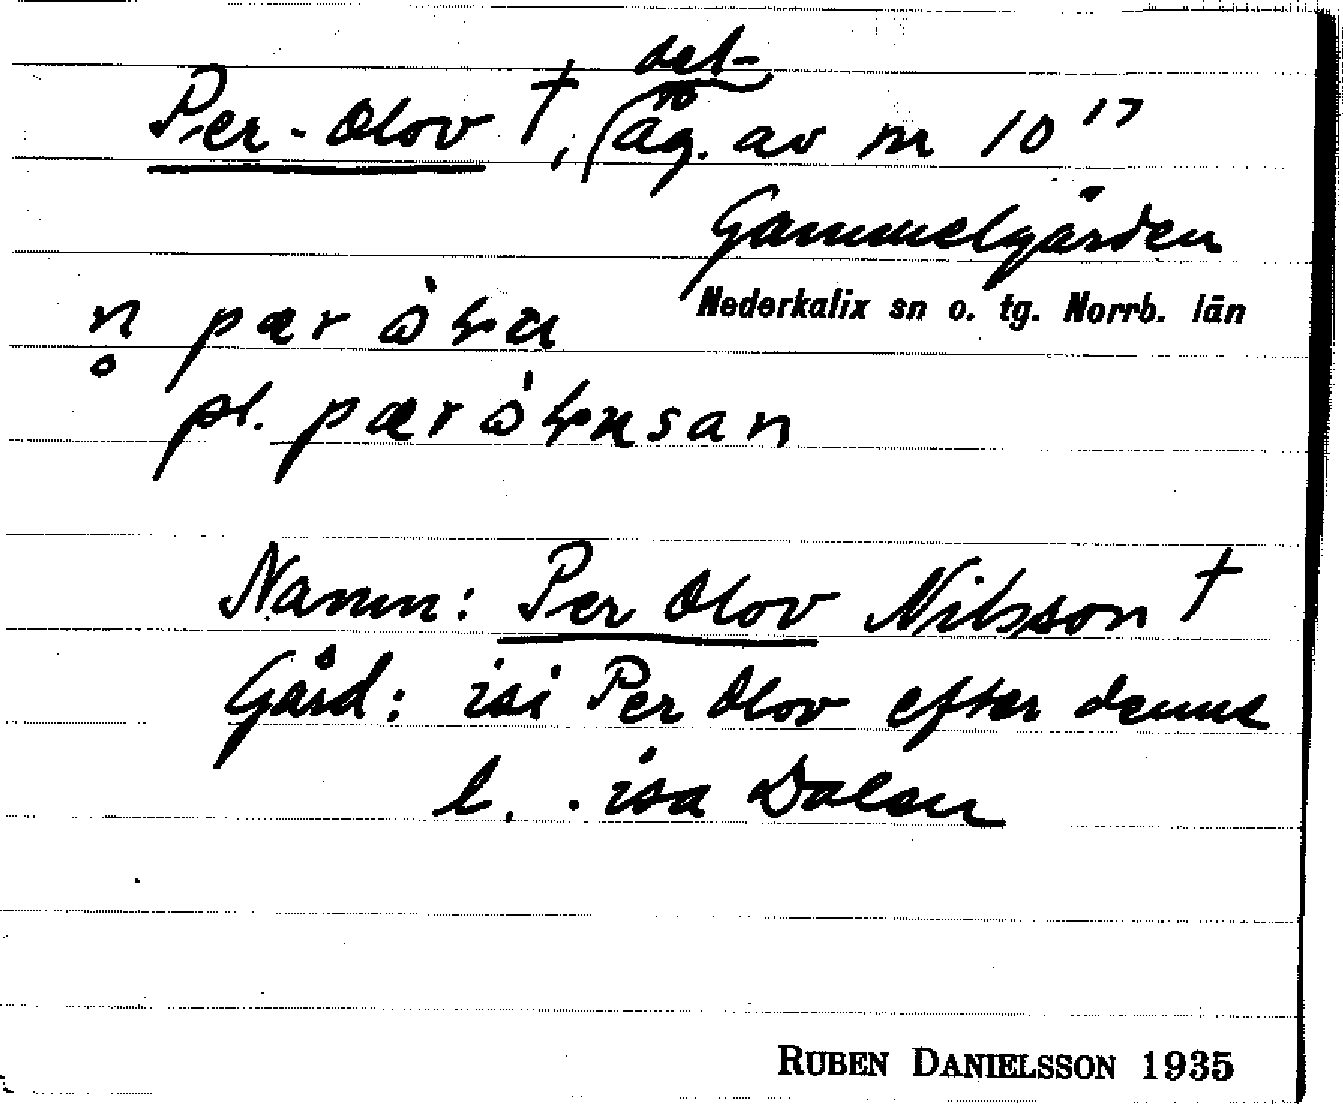 del-
Per-Olov †, (äg. av nr 10¹⁷
Gammelgården
Nederkalix sn o. tg. Norrb. län
pl.
Namn: Per Olov Nilsson †
Gård: isi Per Olov efter denne
l. . isa Dalen
RUBEN DANIELSSON 1935